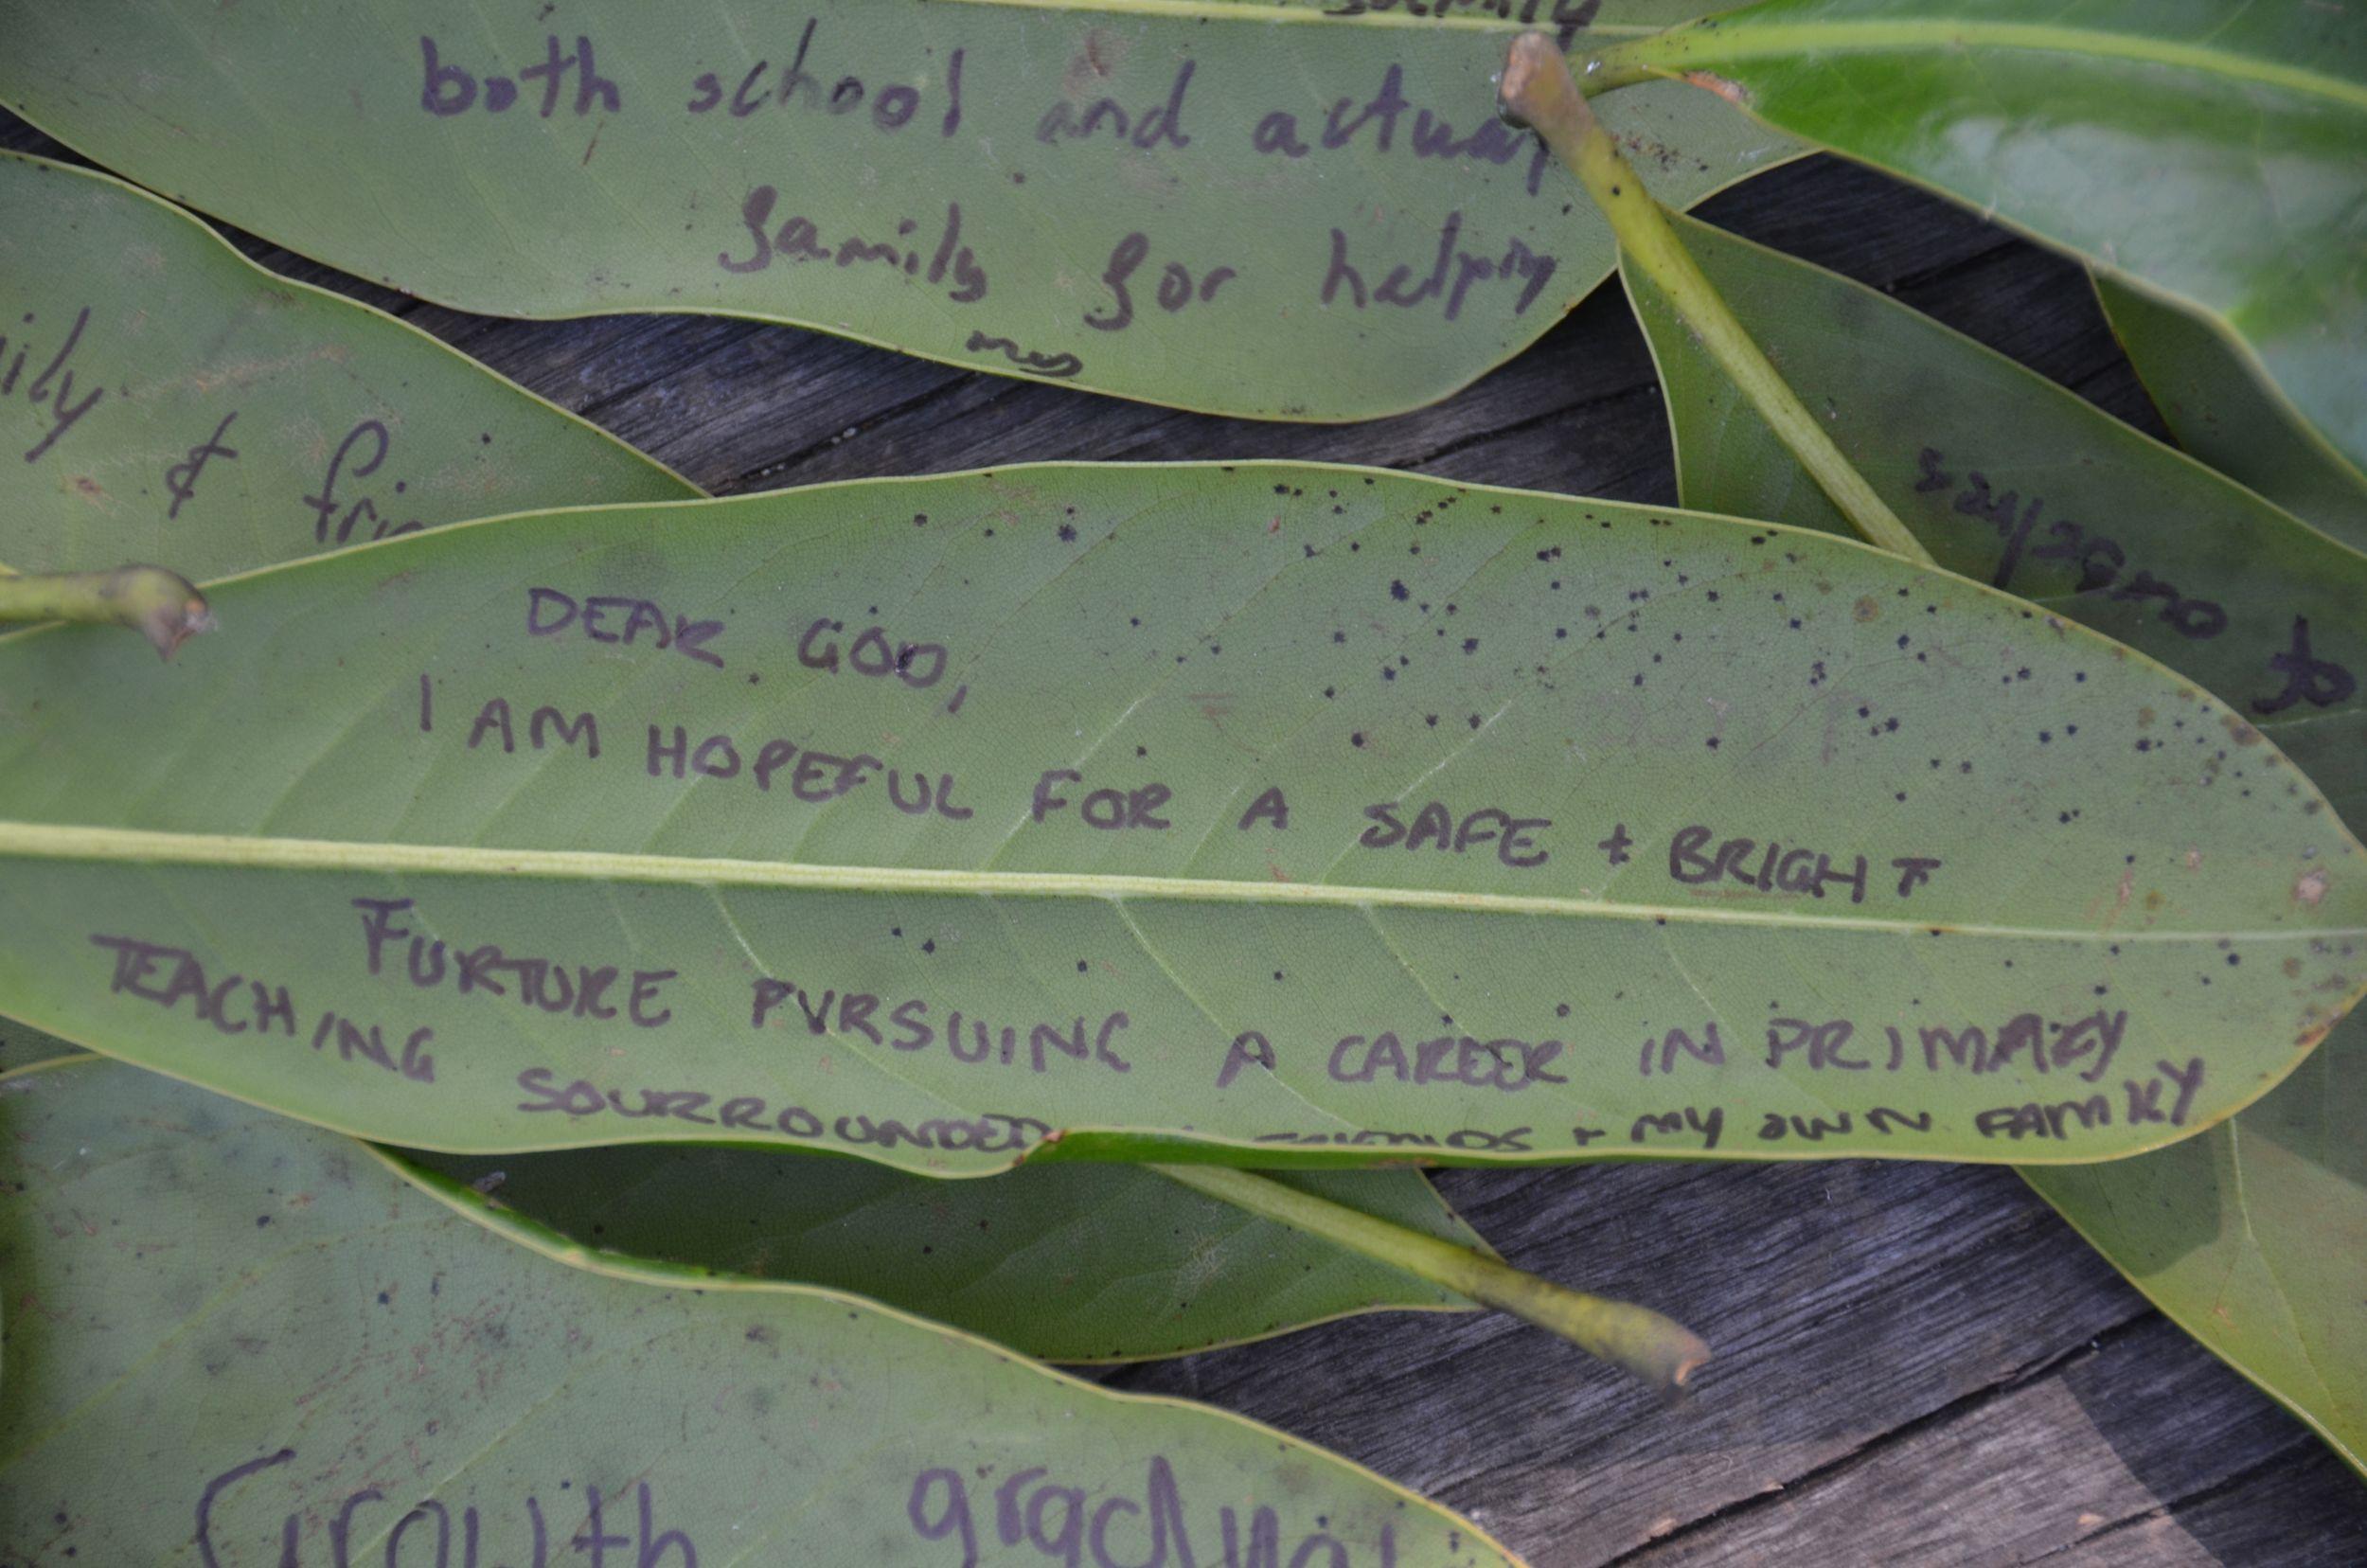 both school and actual
family for helping
me
& fri
DEAR GOD,
I AM HOPEFUL FOR A SAFE + BRIGHT
FURTURE PURSUING A CAREER IN PRIMARY
TEACHING SOURROUNDED FRIENDS + MY OWN FAMILY
Growth gradual